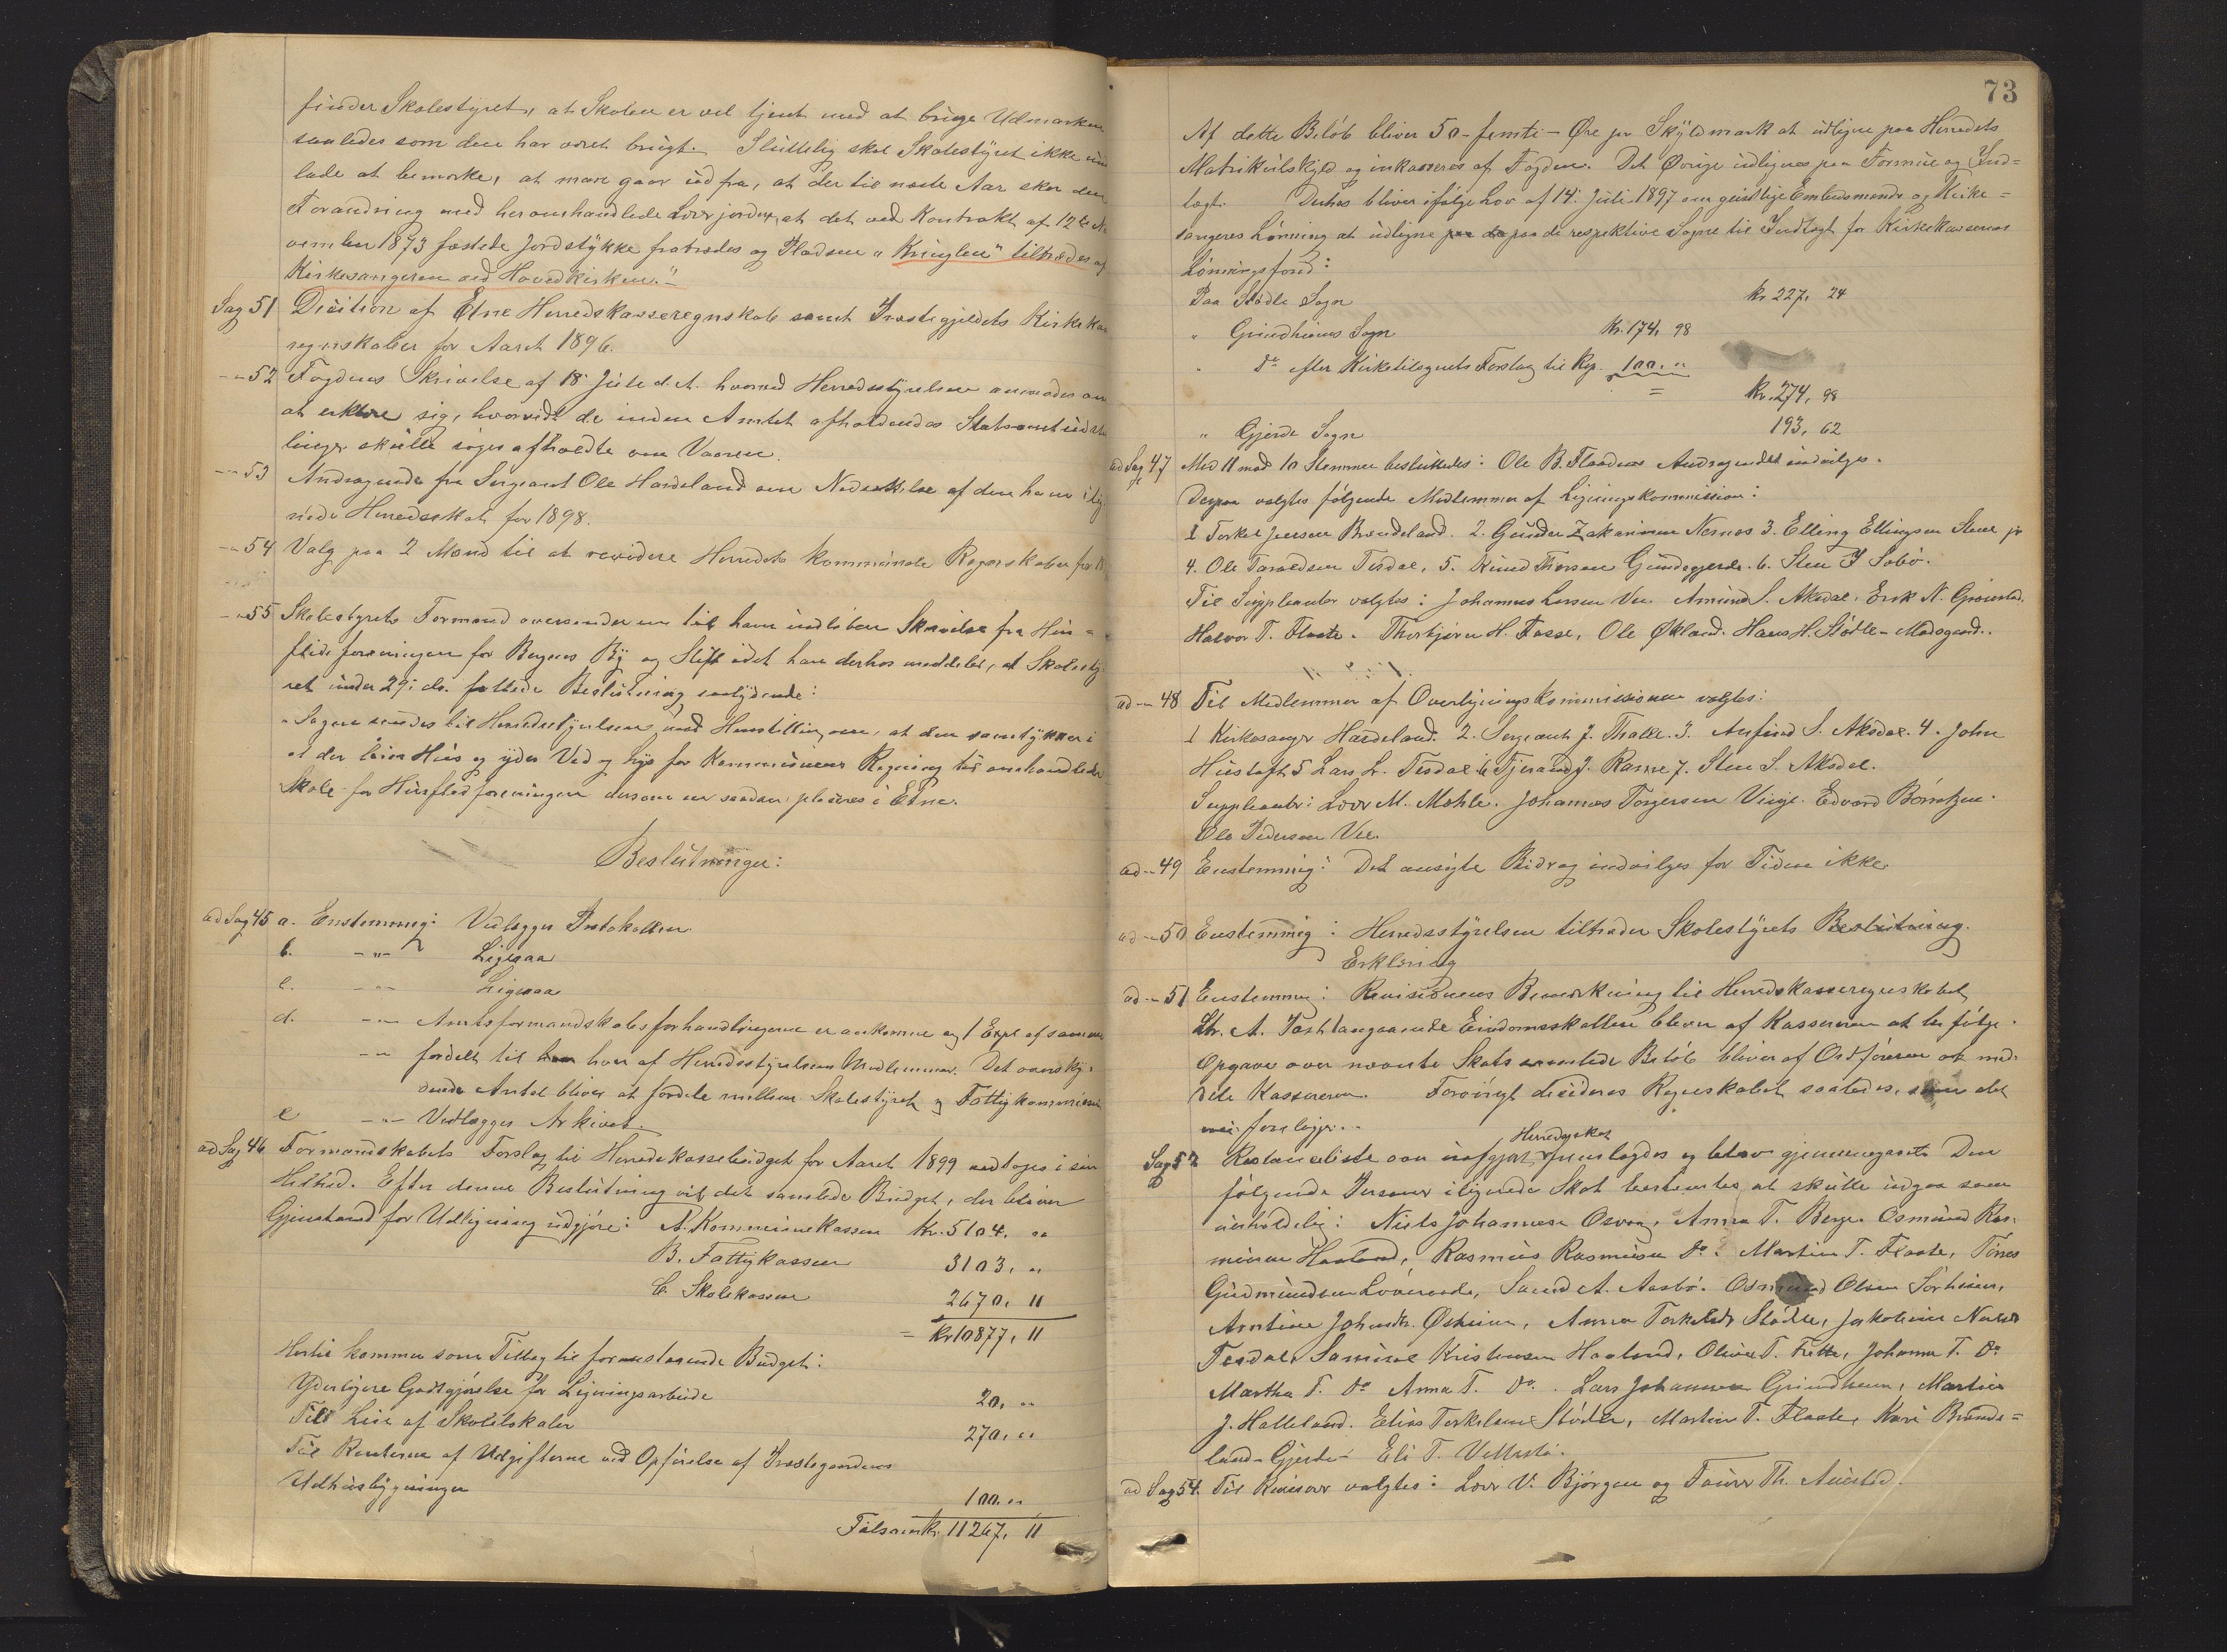 finder Skolestyret, at Skolen er vel tjent med at bruge Udmarken
saaledes som den har været brugt. Sluttelig skal Skolestyret ikke
lade at bemerke, at man gaar ud fra, at der til næste Aar sker den
Forandring med heromhandlede Lærerjorder, at det ved Kontrakt af 12te No
vember 1873 fæstede Jordstykke fratrædes og Pladsen "Kringlen" tiltrædes af
Kirkesangeren ved Hovedkirken."
Sag 51 Decision af Etne Herredskasseregnskab samt Præstegjeldets Kirkeka
regnskaber for Aaret 1896.
-"-52 Fogdens Skrivelse af 18 Juli d.A. hvorved Herredsstyrelsen anmodes om
at erklære sig, hvorvidt de inden Amtet afholdendes
linger skulle søges afholdte om Vaaren.
-"-53 Andragende fra Sergeant Ole Hardeland om Nedsættelse af den ham ilig
nede Herredsskat for 1898.
-"-54 Valg paa 2 Mænd til at revidere Herredets kommunale Regnskaber for
-"-55 Skolestyrets Formand oversender en til ham indløben Skrivelse fra Hus=
flidsforeningen for Bergens By og Stift idet han derhos meddeler, at Skolesty
ret under 29: ds. fattede Beslutning saalydende:
"Sagen sendes til Herredsstyrelsen med Henstilling om, at den samtykker i
at der leies Hus og ydes Ved og Lys for Kommunens Regning til omhandlede
Skole for Husflidsforeningen dersom en saadan placeres i Etne.
Beslutninger:
ad Sag 45 a. Enstemmig: Vedlægges Protokollen.
b. -"- Ligesaa
c. -"- Ligesaa
d. -"- Amtsformandskabsforhandlingerne er ankomne og 1 Expl af samme
-"- fordelt til hver af Herredsstyrelsens Medlemmer. Det oversky=
dende Antal bliver at fordele mellem Skolestyret og Fattigkommission
e -"- Vedlægges Arkivet.
ad Sag 46 Formandskabets Forslag til Herredskassebudget for Aaret 1899 vedtages i sin
Helhed. Efter denne Beslutning vil det samlede Budget, der bliver
Gjenstand for Udligning udgjøre: A. Kommunekassen Kr. 5104. "
B. Fattigkassen 3103. "
C. Skolekassen 2670. 11
= Kr 10877, 11
Hertil kommer som Tillæg til foranstaaende Budget:
Yderligere Godtgjørelse for Ligningsarbeide 20. "
Til Leie af Skolelokaler 270. "
Til Renterne af Udgifterne ved Opførelse af Præstegaardens
Udhusbygninger 100. "
Tilsam Kr. 11267, 11
73
Af dette Beløb bliver 50 - femti - Øre pr Skyldmark at udligne paa Herredets
Matrikulskyld og inkasseres af Fogden. Det Øvrige udlignes paa Formue og Ind=
tægt. Derhos bliver ifølge Lov af 14: Juli 1897 om geistlige Embedsmænds og Kirke=
sangeres Lønning at udligne paa de respektive Sogne til Indtægt for Kirkekassernes
Lønningsfond:
Paa Stødle Sogn Kr 227, 24
" Grindheims Sogn Kr. 174, 98
" Do efter Kirketilsynets Forslag til Rep. 100. "
= Kr. 274, 98
" Gjerde Sogn 193, 62
ad Sag 47 Med 11 mod 10 Stemmer besluttedes: Ole B. Flaadens Andragendet indvilges.
Derpaa valgtes følgende Medlemmer af Ligningskommission:
1 Torkel Jensen Brændeland. 2. Gunder Zakariasen Nernes 3. Elling Ellingsen Steen jr
4. Ole Taraldsen Tesdal, 5. Knud Thorsen Gundegjerde. 6. Sten I Sæbø.
Til Suppleanter valgtes: Johannes Larsen Vee. Amund S. Aksdal. Erik N. Grønstad.
Halvor T. Flaate. Thorbjørn H. Fosse, Ole Økland. Hans H. Stødle-Medsgaard.
ad -"- 48 Til Medlemmer af Overligningskommissionen valgtes:
1 Kirkesanger Hardeland. 2. Sergeant J. Tholle. 3. Anfind S. Aksdal. 4. John
Hustoft 5 Lars L. Tesdal 6 Tjerand J. Ramse 7. Sten S. Aksdal.
Suppleanter: Lars M. Mæhle. Johannes Torgersen Vinje. Edvard Børretzen.
Ole Pedersen Vee.
ad -"- 49 Enstemmig: Det ansøgte Bidrag indvilges for Tiden ikke.
ad -"- 50 Enstemmig: Herredsstyrelsen tiltræder Skolestyrets Beslutning.
Erklæring
ad -"- 51 Enstemmig: Revisionens Bemærkning til Herredskasseregnskabet
Ltr. A. Post 1 angaaende Eiendomsskatten bliver af Kassereren at befølge.
Opgave over nævnte Skats samlede Beløb bliver af Ordføreren at med=
dele Kassereren. Forøvrigt decideres Regnskabet saaledes, som det
foreligger.
Sag 52 Restanceliste over uafgjort Herredsskat fremlagdes og blev gjennemgaaet. Den
følgende Personer ilignede Skat bestemtes at skulle udgaa som
uerholdelig: Niels Johannesen Osvaag, Anna T. Berge. Osmund Ras=
mussen Haaland, Rasmus Rasmussen Do. Martin T. Flaate, Tørres
Gudmundsen Løvereide, Svend A. Aasbø. Osmund Olsen Sørheim,
Arntine Johnsdr. Østreim, Anna Torkelsdr Stødle, Jakobine Nilsdr
Tesdal, Samuel Kristensen Haaland, Oline T. Frette, Johanna T. Do
Martha T. Do Anna T. Do. Lars Johannesen Grindheim, Martin
J. Halleland. Elias Torkelsen Stødle, Martin T. Flaate, Kari Brænde=
land-Gjerde- Eli T. Vellestø.
ad Sag 54. Til Revisorer valgtes: Lars V. Bjørgen og Faurr Th. Auestad.